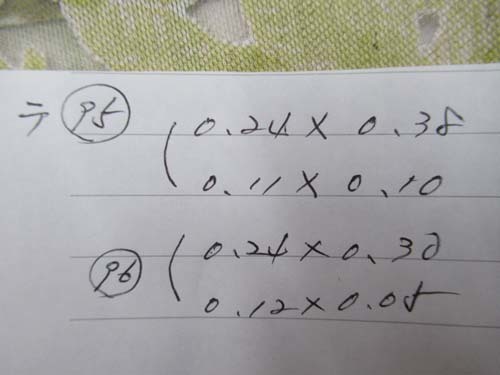 テ 95 0.24 × 0.35
0.11 × 0.10
96 0.24 × 0.30
0.12 × 0.05